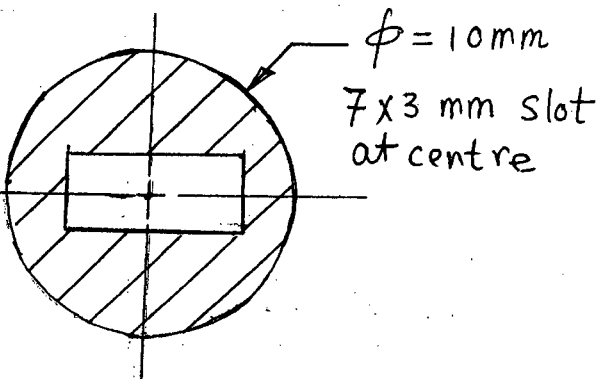 ϕ = 10mm
7x3 mm slot
at centre